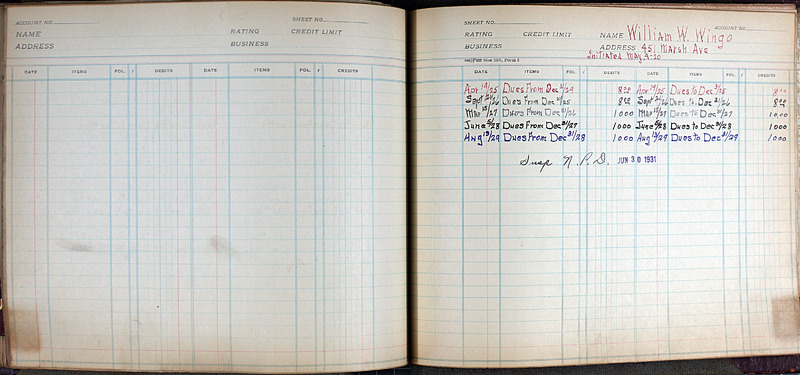 ACCOUNT NO.
SHEET NO.
NAME
RATING CREDIT LIMIT
ADDRESS
BUSINESS
DATE ITEMS FOL. DEBITS DATE ITEMS FOL. CREDITS
SHEET NO.
ACCOUNT NO.
RATING CREDIT LIMIT NAME William W. Wingo
BUSINESS ADDRESS 45 Marsh Ave
Initiated May 4-20
DATE ITEMS FOL. DEBITS DATE ITEMS FOL. CREDITS
Apr 14/25 Dues From Dec 31/24 8 00 Apr 14/25 Dues to Dec 31/25 8 00
Sept 21/26 Dues From Dec 31/25 8 00 Sept 21/26 Dues to Dec 31/26 8 00
Mar 15/27 Dues From Dec 31/26 10 00 Mar 15/27 Dues To Dec 31/27 10.00
June 5/28 Dues From Dec 31/27 10 00 June 5/28 Dues to Dec 31/28 10 00
Aug 19/29 Dues From Dec 31/28 10 00 Aug 19/29 Dues to Dec 31/29 10 00
Susp N.P.D. JUN 30 1931